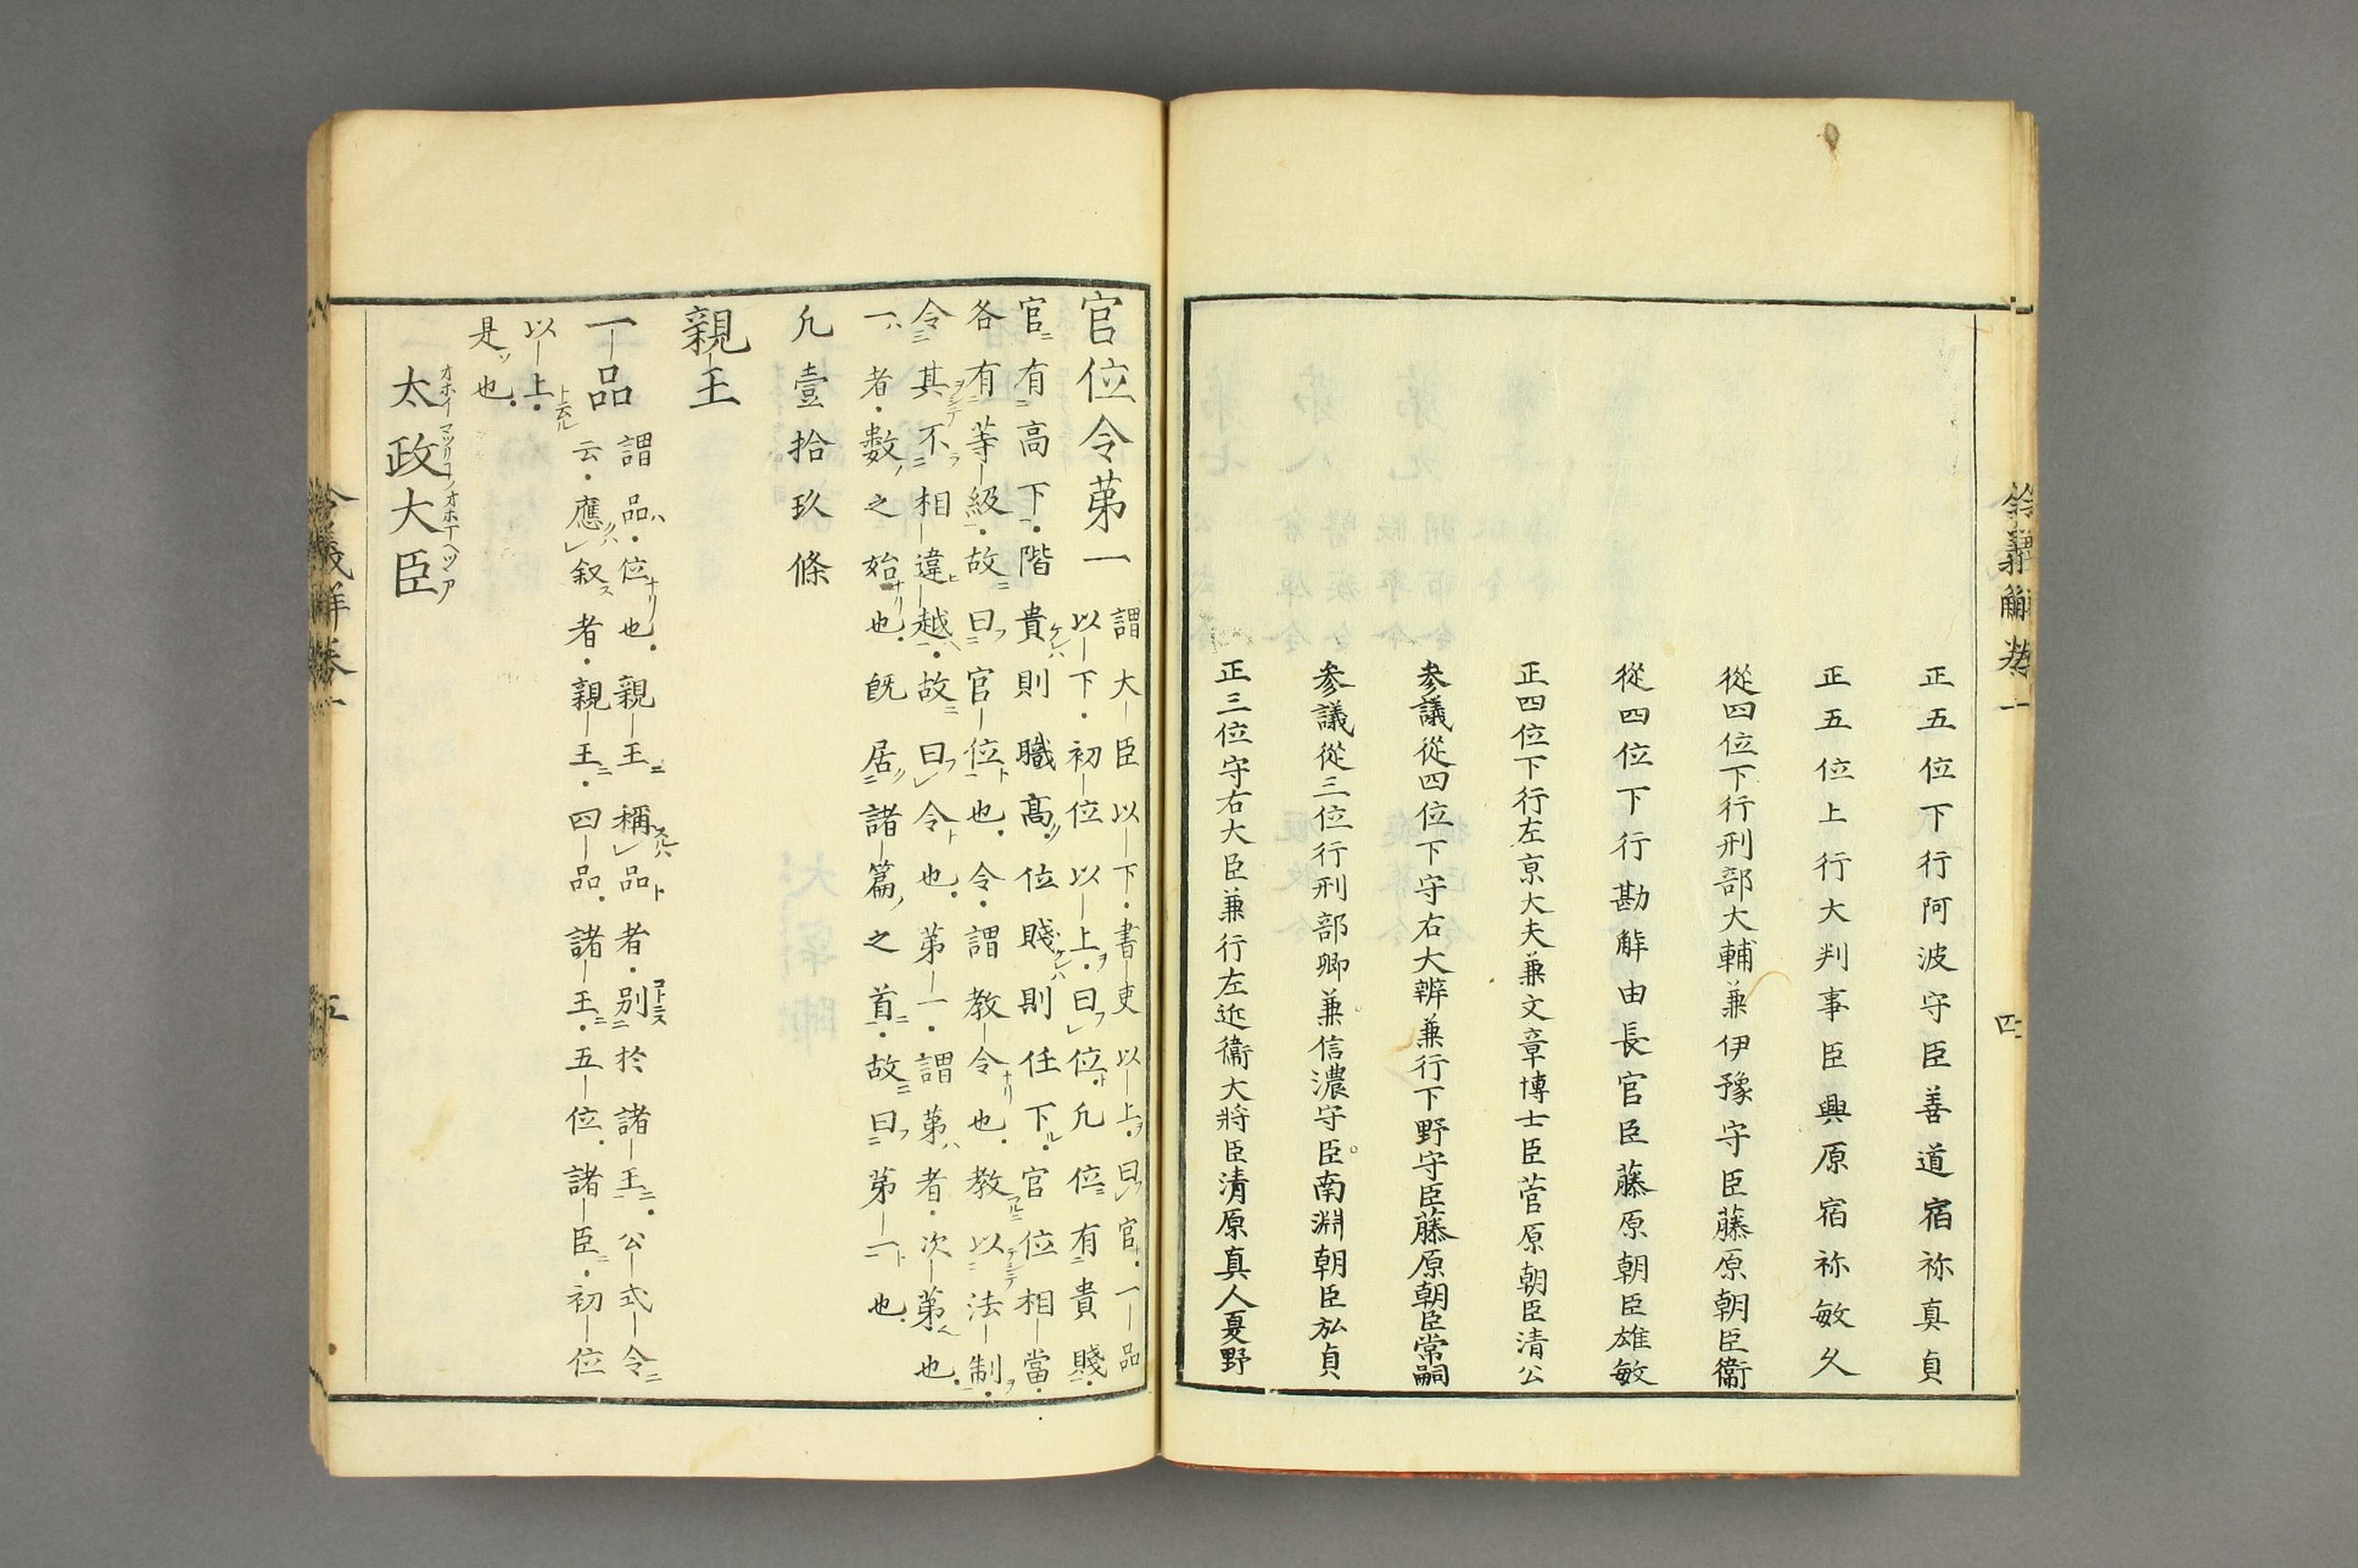 令義解卷一
四
正五位下行阿波守臣善道宿祢真貞
正五位上行大判事臣興原宿祢敏久
從四位下行刑部大輔兼伊豫守臣藤原朝臣衞
從四位下行勘解由長官臣藤原朝臣雄敏
正四位下行左京大夫兼文章博士臣菅原朝臣清公
參議從四位下守右大辨兼行下野守臣藤原朝臣常嗣
参議從三位行刑部卿兼信濃守臣南淵朝臣弘貞
正三位守右大臣兼行左近衞大將臣清原真人夏野
官位令苐一
謂大臣以下書吏以上曰官一品
以下初位以上曰位凢位有貴賤
官有高下階貴則職髙位賤則任下官位相當
各有等級故曰官位也令謂教令也教以法制
令其不相違越故曰令也苐一謂苐者次苐也
一者數之始也旣居諸篇之首故曰苐一也
凢壹拾玖條
親王
一品
謂品位也親王稱品者別於諸王公式令
云應叙者親王四品諸王五位諸臣初位
以上
是也
太政大臣
オホイマツリコノオホマヘツアア
令義解卷一
五